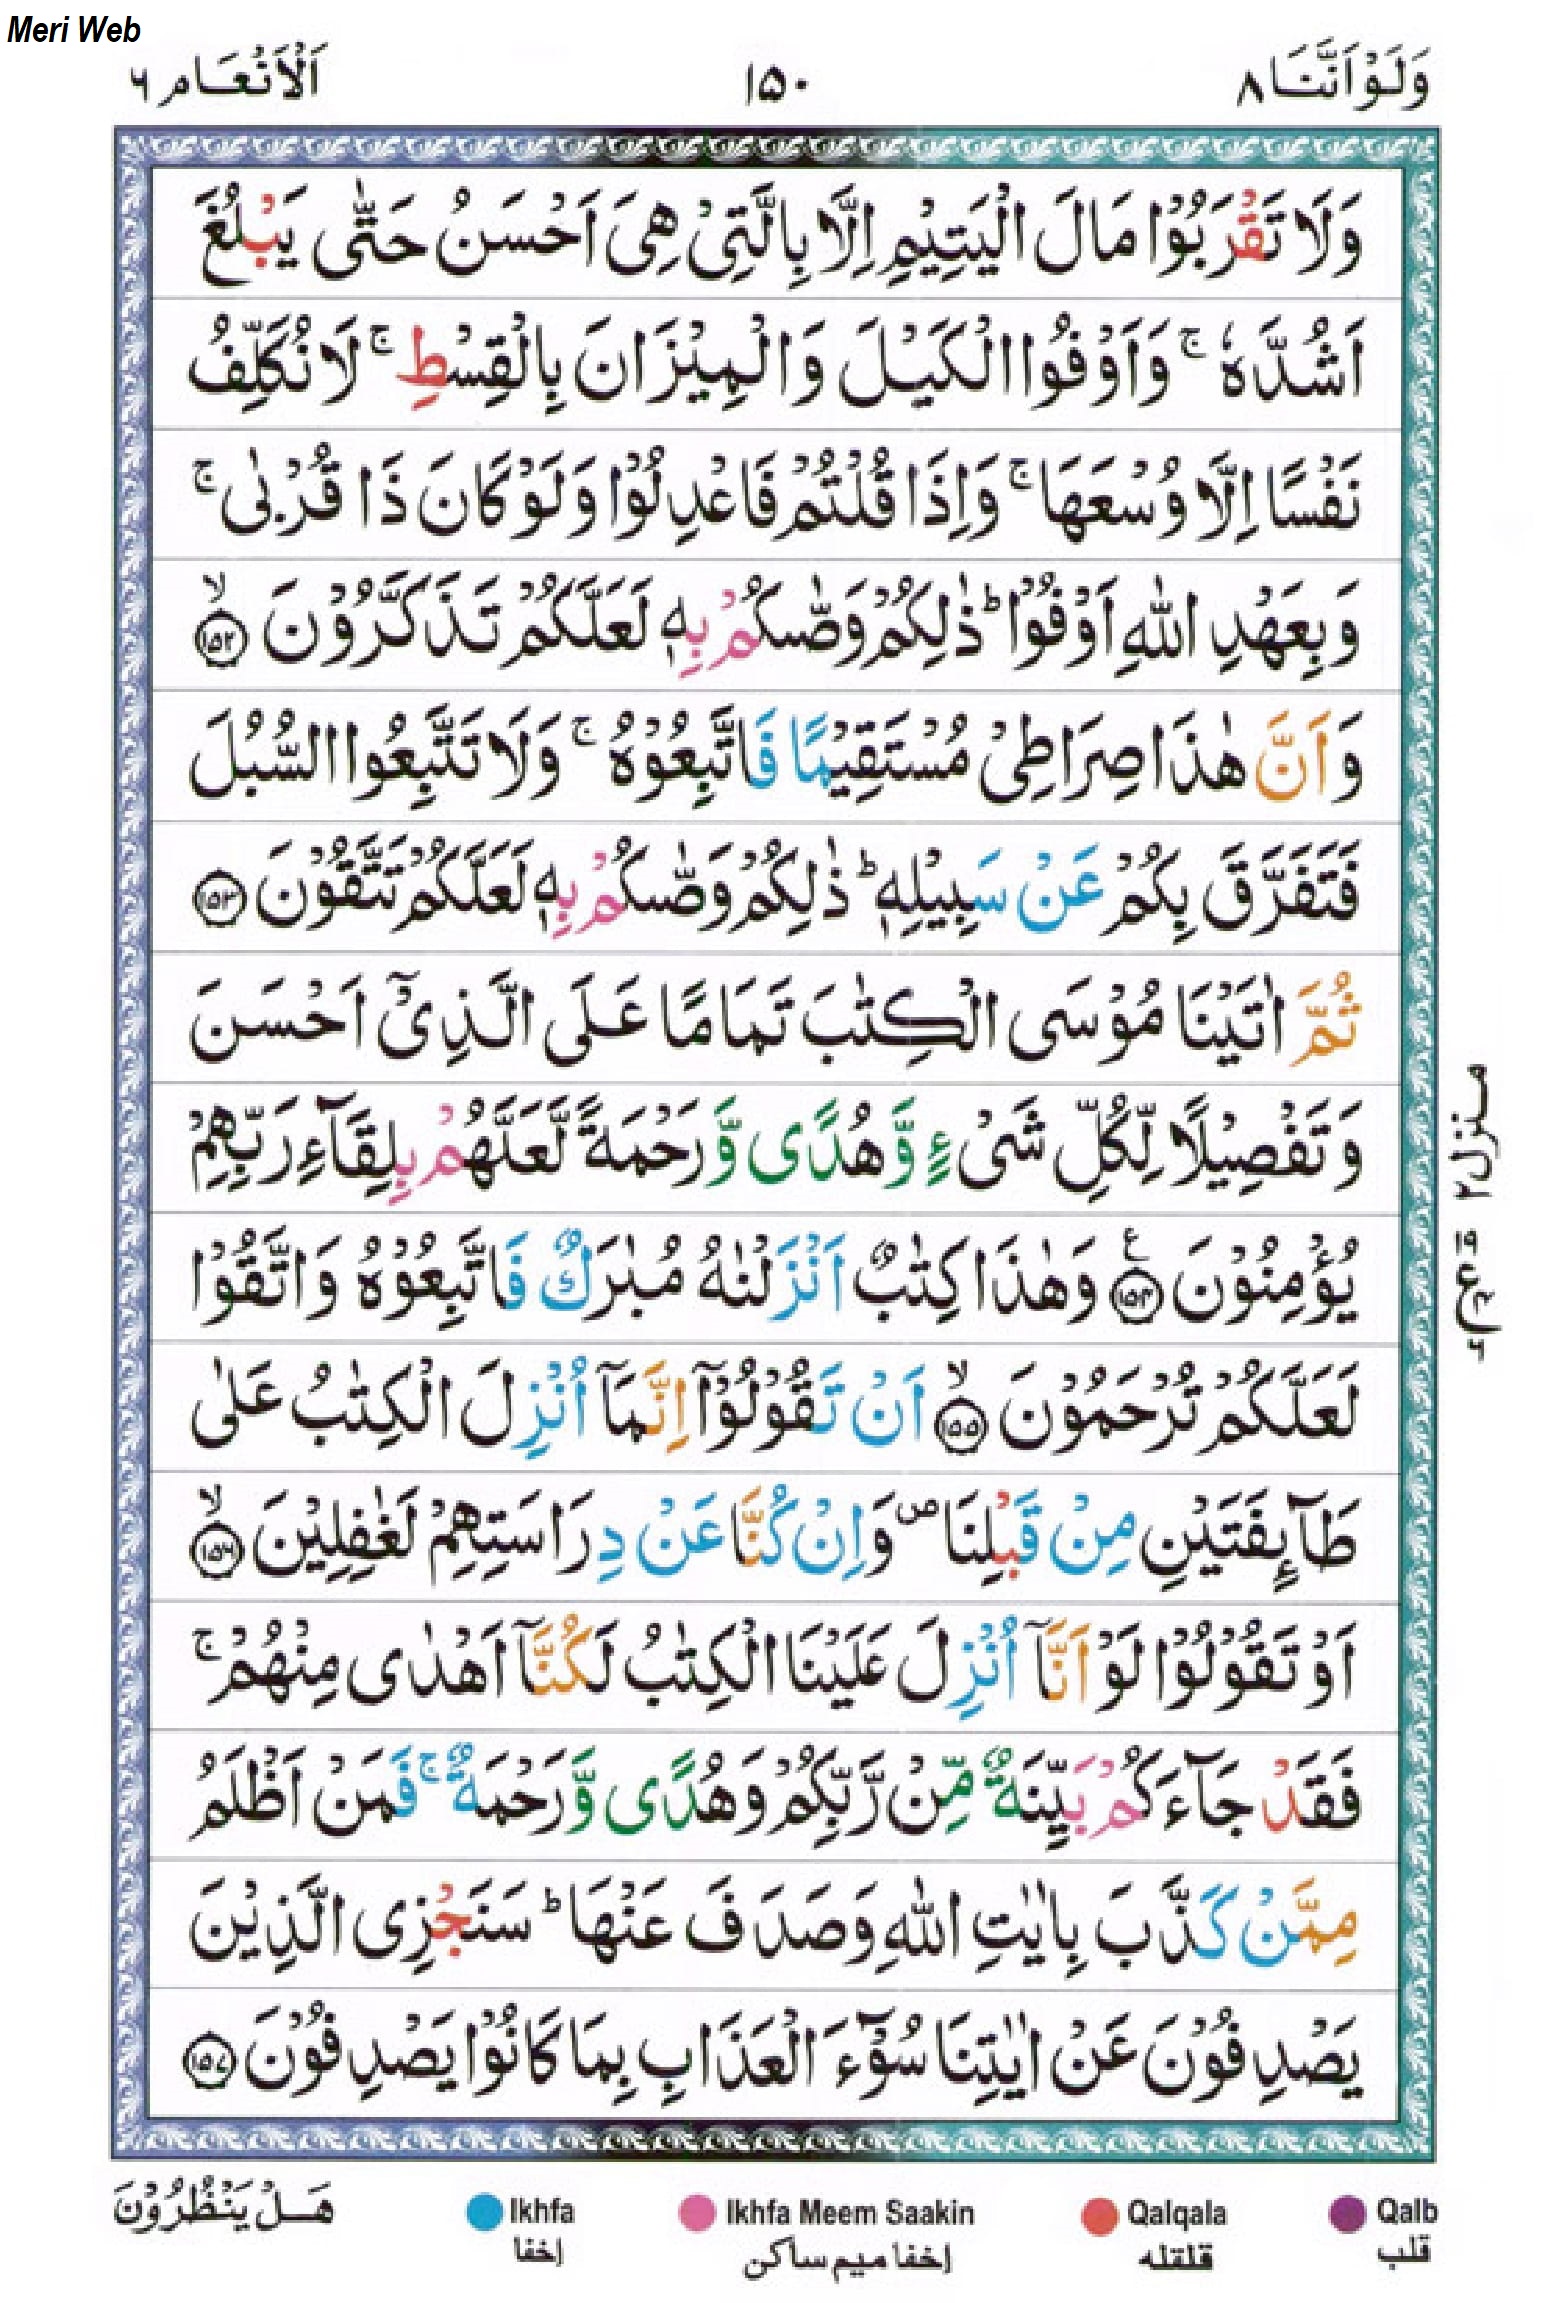 Meri Web
وَلَوْ اَنَّنَا ٨
١٥٠
اَلْاَنْعَام ٦
وَلَا تَقْرَبُوْا مَالَ الْيَتِيْمِ اِلَّا بِالَّتِيْ هِيَ اَحْسَنُ حَتّٰى يَبْلُغَ
اَشُدَّهٗ ۚ وَاَوْفُوا الْكَيْلَ وَالْمِيْزَانَ بِالْقِسْطِ ۚ لَا نُكَلِّفُ
نَفْسًا اِلَّا وُسْعَهَا ۚ وَاِذَا قُلْتُمْ فَاعْدِلُوْا وَلَوْ كَانَ ذَا قُرْبٰى ۚ
وَبِعَهْدِ اللّٰهِ اَوْفُوْا ؕ ذٰلِكُمْ وَصّٰىكُمْ بِهٖ لَعَلَّكُمْ تَذَكَّرُوْنَ ۙ ١٥٢
وَاَنَّ هٰذَا صِرَاطِيْ مُسْتَقِيْمًا فَاتَّبِعُوْهُ ۚ وَلَا تَتَّبِعُوا السُّبُلَ
فَتَفَرَّقَ بِكُمْ عَنْ سَبِيْلِهٖ ؕ ذٰلِكُمْ وَصّٰىكُمْ بِهٖ لَعَلَّكُمْ تَتَّقُوْنَ ١٥٣
ثُمَّ اٰتَيْنَا مُوْسَى الْكِتٰبَ تَمَامًا عَلَى الَّذِيْٓ اَحْسَنَ
وَتَفْصِيْلًا لِّكُلِّ شَيْءٍ وَّهُدًى وَّرَحْمَةً لَّعَلَّهُمْ بِلِقَآءِ رَبِّهِمْ
يُؤْمِنُوْنَ ١٥٤ ع وَهٰذَا كِتٰبٌ اَنْزَلْنٰهُ مُبٰرَكٌ فَاتَّبِعُوْهُ وَاتَّقُوْا
لَعَلَّكُمْ تُرْحَمُوْنَ ۙ ١٥٥ اَنْ تَقُوْلُوْٓا اِنَّمَآ اُنْزِلَ الْكِتٰبُ عَلٰى
طَآىِٕفَتَيْنِ مِنْ قَبْلِنَا ۪ وَاِنْ كُنَّا عَنْ دِرَاسَتِهِمْ لَغٰفِلِيْنَ ۙ ١٥٦
اَوْ تَقُوْلُوْا لَوْ اَنَّآ اُنْزِلَ عَلَيْنَا الْكِتٰبُ لَكُنَّآ اَهْدٰى مِنْهُمْ ۚ
فَقَدْ جَآءَكُمْ بَيِّنَةٌ مِّنْ رَّبِّكُمْ وَهُدًى وَّرَحْمَةٌ ۚ فَمَنْ اَظْلَمُ
مِمَّنْ كَذَّبَ بِاٰيٰتِ اللّٰهِ وَصَدَفَ عَنْهَا ؕ سَنَجْزِى الَّذِيْنَ
يَصْدِفُوْنَ عَنْ اٰيٰتِنَا سُوْٓءَ الْعَذَابِ بِمَا كَانُوْا يَصْدِفُوْنَ ١٥٧
منزل ٢
هَلْ يَنْظُرُوْنَ
Ikhfa
إخفا
Ikhfa Meem Saakin
إخفا ميم ساكن
Qalqala
قلقله
Qalb
قلب